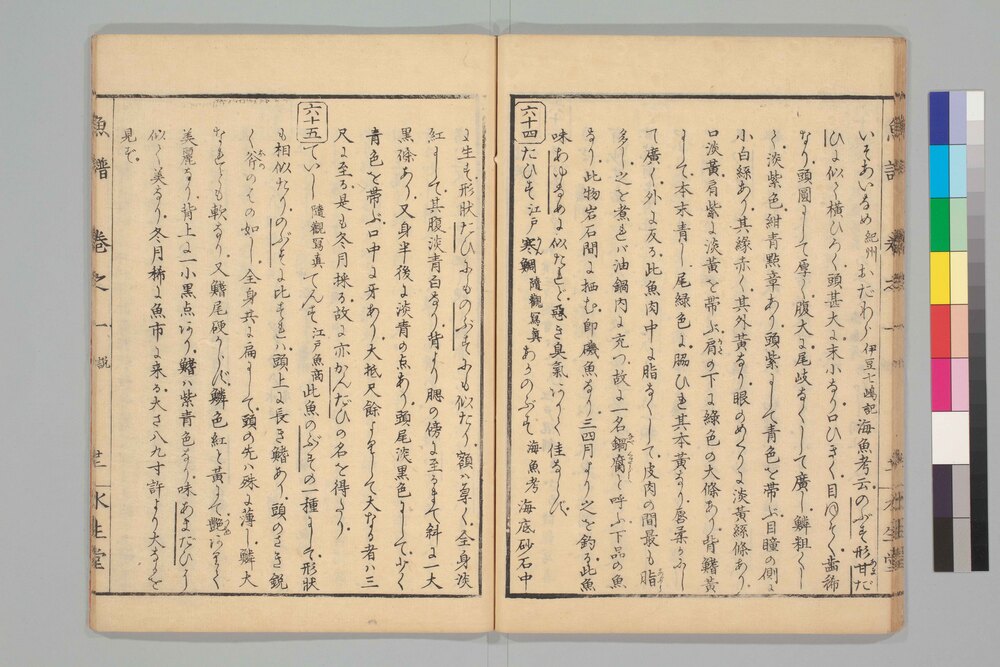 いそあいなめ 紀州 おだわら 伊豆七嶋記 海魚考云のぶす形甘だ
ひに似て横ひろく頭甚大に末小なり口ひきく目円く歯
なり頭圓にして厚く腹大に尾岐なくして廣く鱗粗く
く淡紫色紺青點章あり頭紫にして青色を帯ぶ目瞳の側に
小白絲あり其縁赤く其外黄なり眼のめぐりに淡黄絲條あり
口淡黄肩紫に淡黄を帯ぶ肩の下に緑色の大條あり背鰭黄
にして本末青し尾緑色に脇ひれ其本黄なり唇柔かに
て廣く外に反る此魚肉中に脂なくして皮肉の間最も脂
多し之を煮れバ油鍋肉に充つ故に一名鍋腐と呼ふ下品の魚
なり此物岩石間に栖む即磯魚なり三四月より之を釣る此魚
味あゆなめに似たれども悪き臭氣ありて佳ならず
六十四 たひす 江戸 寒鯛 隨觀寫真 あかのぶす 海魚考 海底砂石中
に生ず形状たひにものぶすにも似たり額ハ尊く全身淡
紅にして其腹淡青白なり背より腮の傍に至るまで斜に一大
黒條あり又身半後に淡青の点あり頭尾淡黒色にして少く
青色を帯ぶ口中に牙あり大抵尺餘にして大なる者ハ三
尺に至る是も冬月採る故に亦かんだひの名を得たり
六十五 ていし 隨觀寫真 てんす 江戸魚商 此魚のぶすの一種にして形状
も相似たりのぶすに比すれハ頭上に長き鰭あり頭のさき鋭
く斧のはの如し全身共に扁にして頭の先ハ殊に薄し鱗大
なれども軟なり又鰭尾硬からず鱗色紅と黄にて艷ありて
美麗なり背上に一小黒点あり鰭ハ紫青色なり味あまだひに
似て美なり冬月稀に魚市に来る大さ八九寸許より大なるを
見ず
魚譜 巻之一 説
水生堂